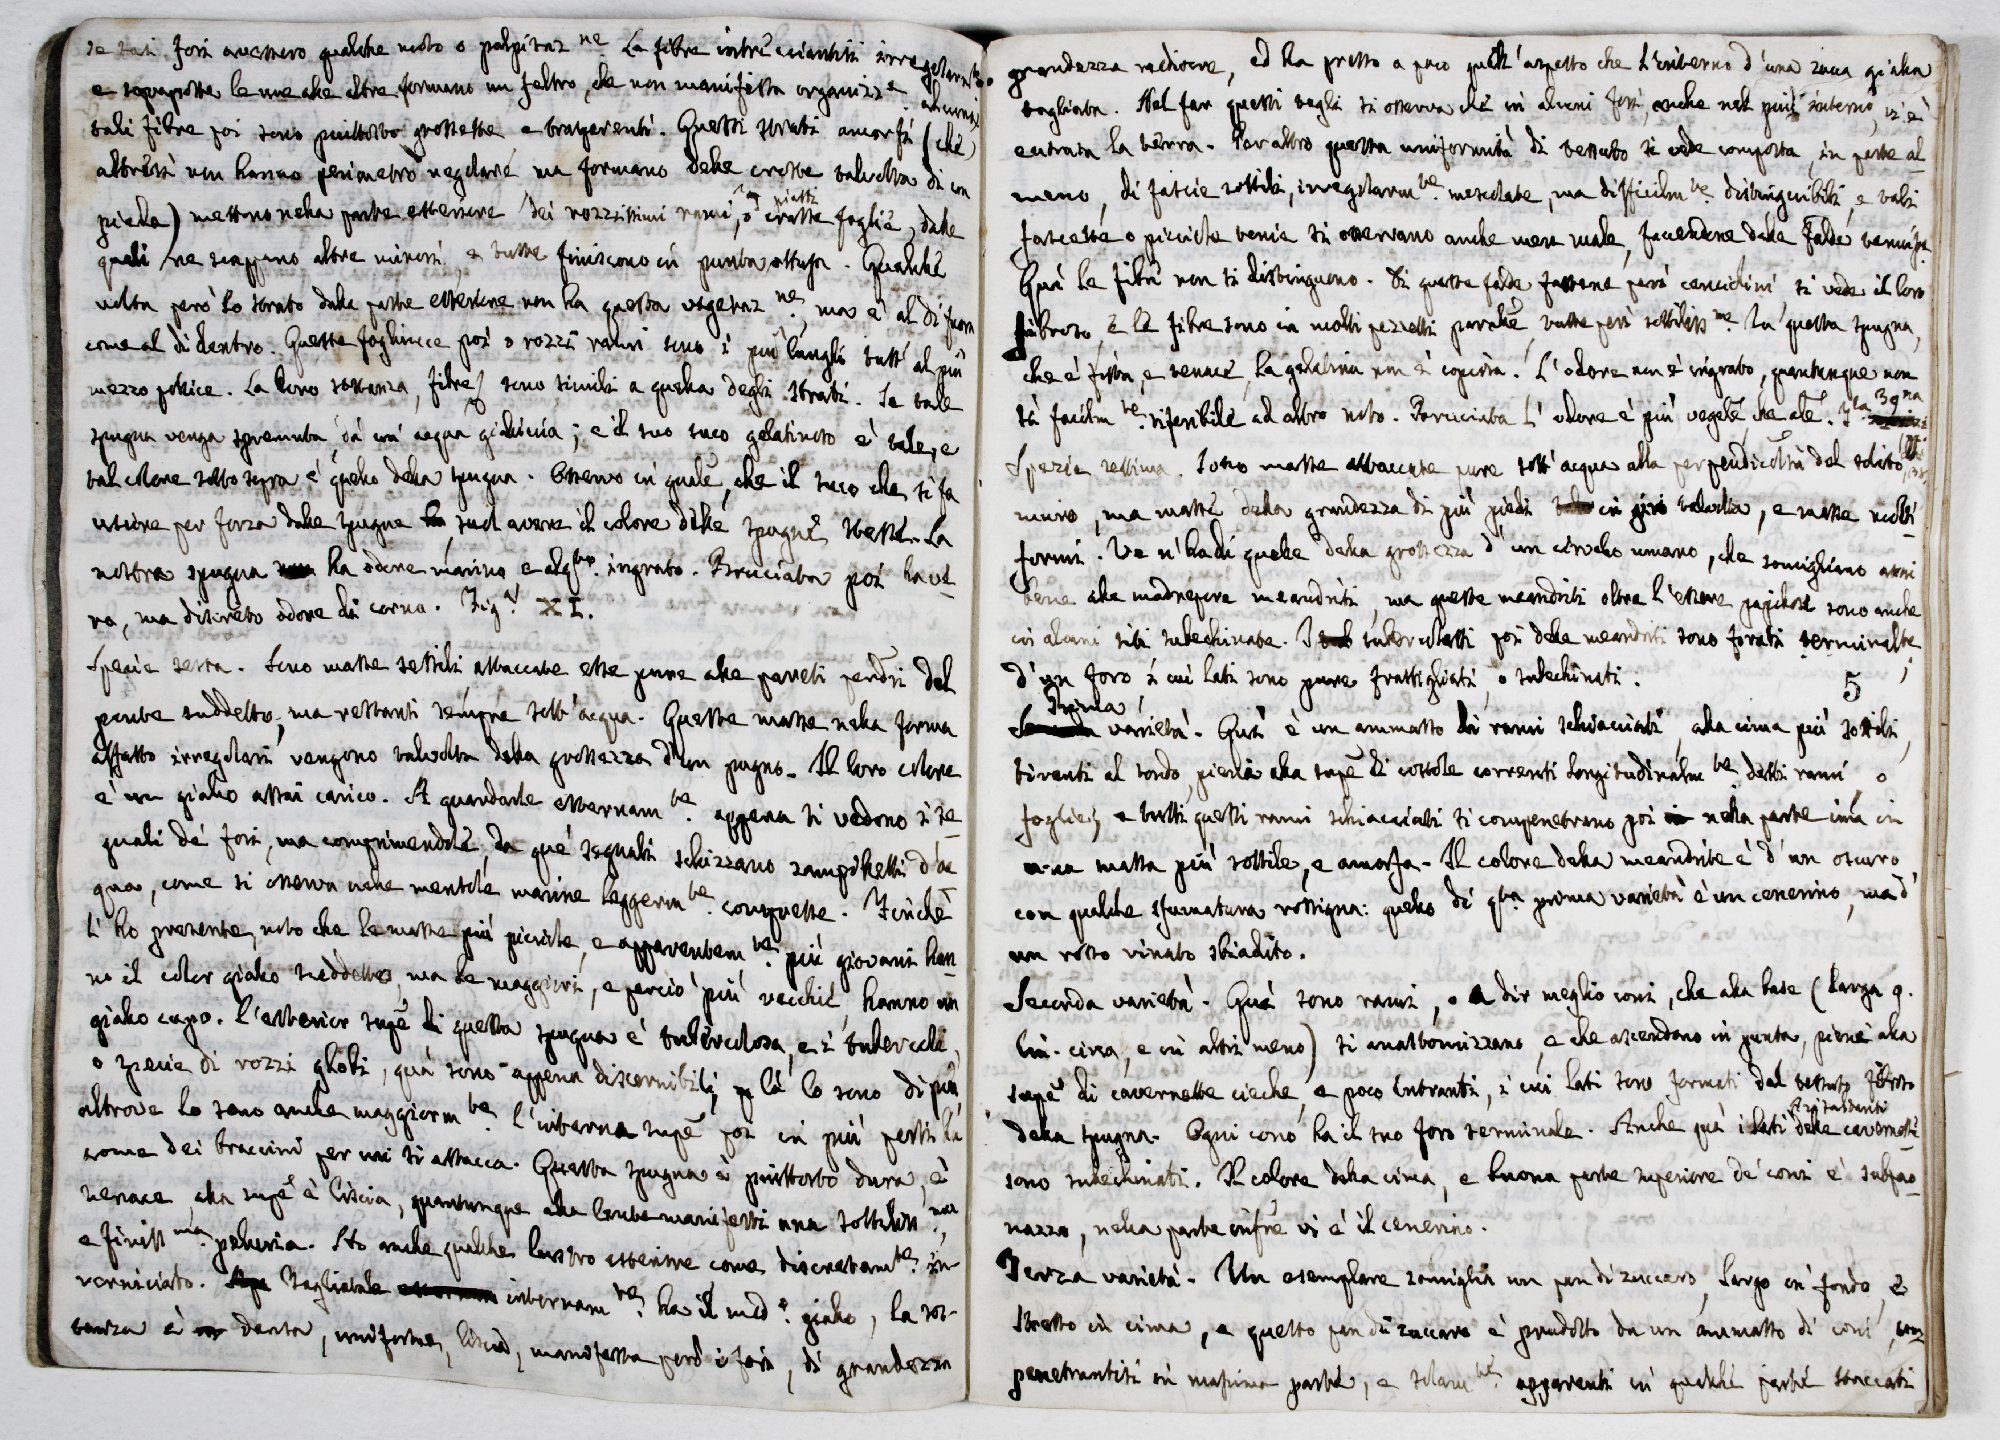 se tali fori avessero qualche moto o palpitaz.ne La fibre intrecciantisi irregolarm.te
e soprapposte le une alle altre formano un feltro, che non manifesta organizz.e alcuna:
tali fibre poi sono piuttosto grossette e trasparenti. Questi strati amorfi (chè
altresì non hanno perimetro regolare ma formano delle croste talvolta di un
piede) mettono nella parte esteriore dei rozzissimi rami, o piatte crasse foglie, dalle
quali ne scappano altre minori, e tutte finiscono in punta ottusa. Qualche
volta però lo strato dalla parte esteriore non ha questa vegetaz.ne ma è al di fuori
come al di dentro. Queste fogliucce poi o rozzi rami sono i più lunghi tutt'al più
mezzo pollice. La loro sostanza, fibre sono simili a quella degli strati. Se tale
spugna venga spremuta dà un'acqua gialliccia; e il suo suco gelatinoso è tale, e
tal colore sotto sopra è quello della spugna. Osservo in quale, che il suco che si fa
uscire per forza dalle spugne suol avere il colore delle spugne stesse. La
nostra spugna ha odore marino e alq.to ingrato. Bruciata poi ha ve-
ro, ma discreto odore di corno. Fig.a XI.
Specie sesta. Sono masse sessili attaccate esse pure alle pareti pendi del
ponte suddetto, ma restanti sempre sott'acqua. Queste masse nella forma
affatto irregolari vengono talvolta della grossezza d'un pugno. Il loro colore
è un giallo assai carico. A guardarle esternam.te appena si vedono i se-
gnali de' fori, ma comprimendole, da que' segnali schizzano zampilletti d'ac
qua, come si osserva nelle mentole marine leggerm.te compresse. Finchè
l'ho presente, noto che le masse più picciole, e apparentem.te più giovani han-
no il color giallo suddetto, ma le maggiori, e perciò più vecchie, hanno un
giallo cupo. L'esterior supe di questa spugna è tubercolosa, e i tubercoli,
o specie di rozzi globi, quà sono appena discernibili, e là lo sono di più
altrove lo sono anche maggiorm.te L'interna supe poi in più posti ha
come dei braccini per cui si attacca. Questa spugna è piuttosto dura, e
tenace, alla supe è liscia, quantunque alla lente manifesti una sottiliss.ma,
e finiss.ma peluria. Ha anche qualche lustro esteriore come discretam.te in-
verniciato. Tagliatale internam.te ha il med.o giallo, la sos-
tanza è densa, uniforme, liscia, manifesta però i fori, di grandezza
grandezza mediocre, ed ha presso a poco quell'aspetto che l'interno d'una zucca gialla
tagliata. Nel far questi tagli si osserva che in alcuni fori, anche nel più interno, vi è
entrata la terra. Per altro questa uniformità di tessuto si vede composta, in parte al
meno, di fascie sottili, irregolarm.te mescolate, ma difficilm.te distinguibili, e tali
fascette o picciole tenie si osservano anche men male, facendone delle falde tenuiss.e
Quì le fibre non si distinguono. Di queste falde fattene però cencidini si vede il loro
fibroso, e le fibre sono in molti pezzetti paralle, tutte però sottiliss.me. In questa spugna,
che è fissa, e tenace, la gelatina non è copiosa. L'odore non è ingrato, quantunque non
sà facilm.te riferibile ad altro noto. Bruciata l'odore è più vegete che ale. F.la 39.na
Specie settima. Sono masse attaccate pure sott'acqua alla perpendicoltà del solito
muro, ma masse della grandezza di più piedi in giro talvolta, e masse molti
formi. Ve n'ha di quelle della grossezza d'un cervello umano, che somigliano assai
bene alla madrepora meandriti, ma queste meandriti oltre l'essere papillose sono anche
in alcuni siti subechinate. I tubercoletti poi delle meandriti sono forati terminalte
d'un foro, i cui lati sono pure frastigliati, o subechinati.
5
Prima varietà. Quì è un ammasso di rami schiacciati, alla cima più sottili,
tiranti al tondo, pieni alla supe di costole correnti longitudinalm.te detti rami, o
foglie; e tutti questi rami schiacciati si compenetrano poi nella parte ima in
una massa più sottile, e amorfa. Il colore della meandrite è d'un oscuro
con qualche sfumatura rossigna: quello di q.ta prima varietà è un cenerino, ma d'
un rosso vinato sbiadito.
Seconda varietà. Quì sono rami, o a dir meglio coni, che alla base (larga 9.
lin. circa, e in altri meno) si anastomizzano, e che ascendono in punta, pieni alla
supe di cavernette cieche, e poco entranti, i cui lati sono formati dal tessuto fibroso
della spugna. Ogni cono ha il suo foro terminale. Anche quà i lati risaltanti delle cavernette
sono subechinati. Il colore della cima, e buona parte superiore de' coni è subpao-
nazzo, nella parte infre vi è il cenerino.
Terza varietà. Un esemplare somiglia un pan di zuccaro, largo in fondo, e
stretto in cima, e questo pan di zuccaro è prodotto da un ammasso di coni, com
penetrantisi in massima parte, e solam.te apparenti in qualche parte staccati